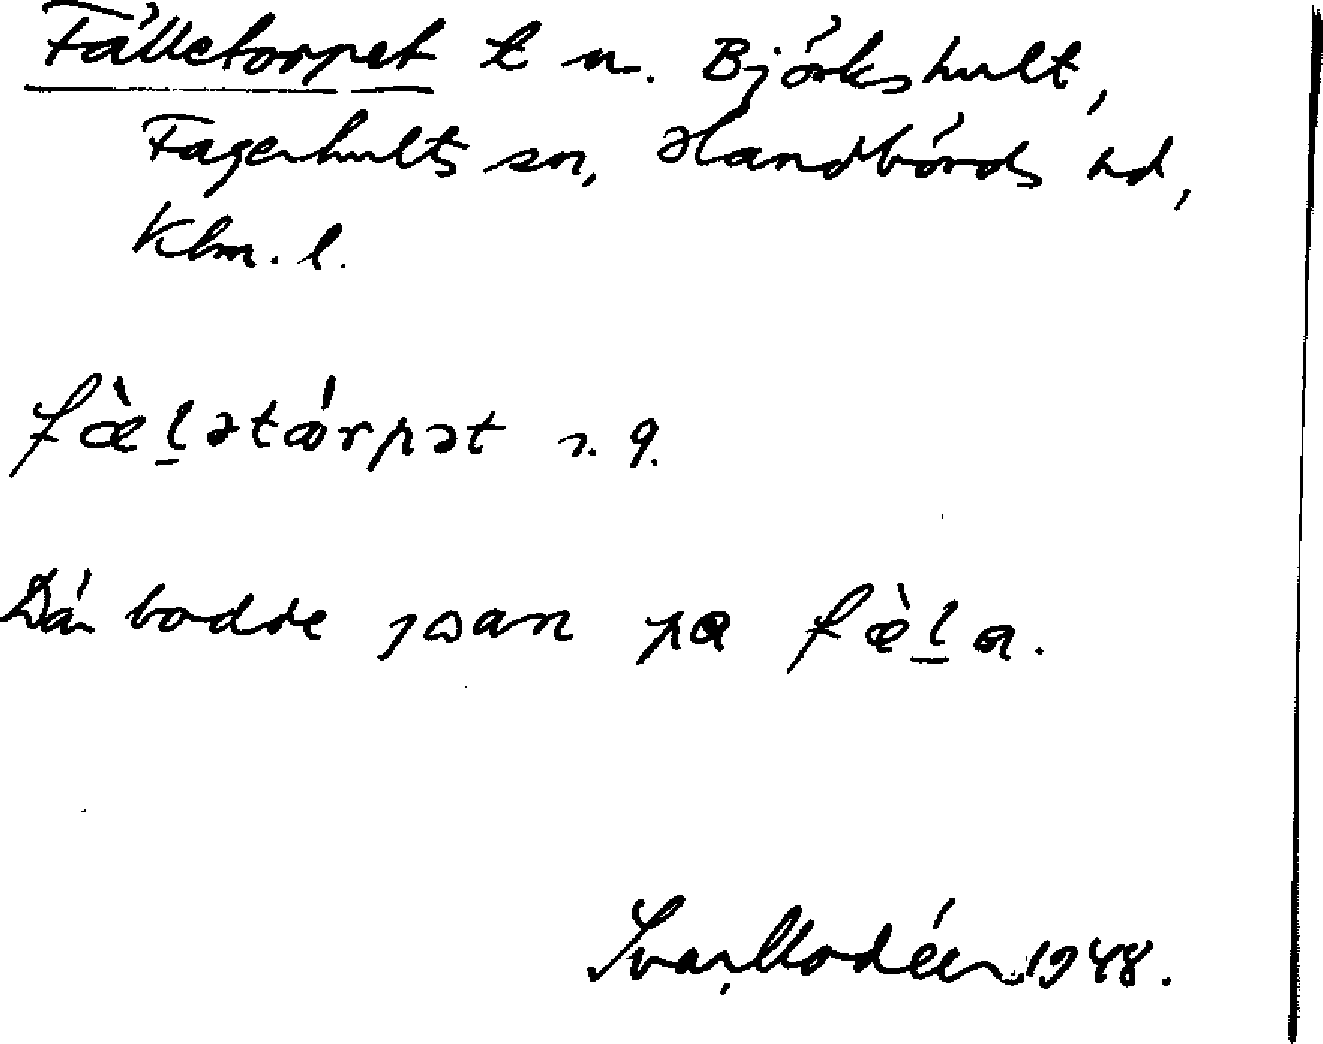 Fälletorpet t u. Björkshult,
Fagerhults sn, Handbörds hd,
Klm. l.
fæ̀l̠ətórpət s. 9.
Där bodde joan pa fæ̀l̠a.
Ivar Modéer 1948.